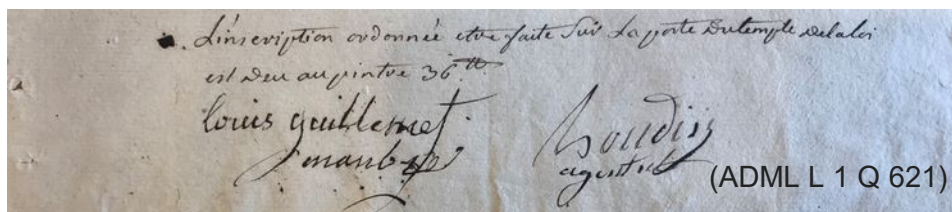 . L'inscription ordonnée etre faite sur La porte Dutemple Delaloi
est Deu au pintre 36 ₶.
louis guillemet
Boudin
agent
(ADML L 1 Q 621)